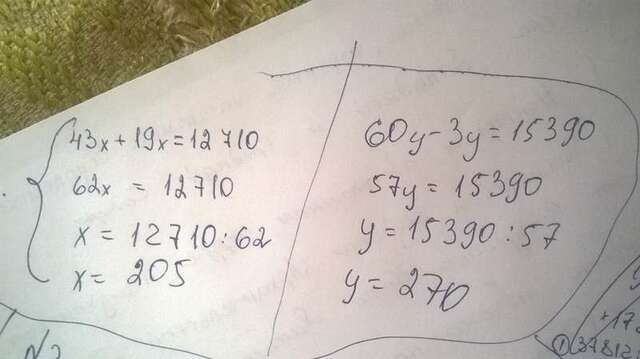 43x + 19x = 12710
62x = 12710
x = 12710 : 62
x = 205
60y - 3y = 15390
57y = 15390
y = 15390 : 57
y = 270